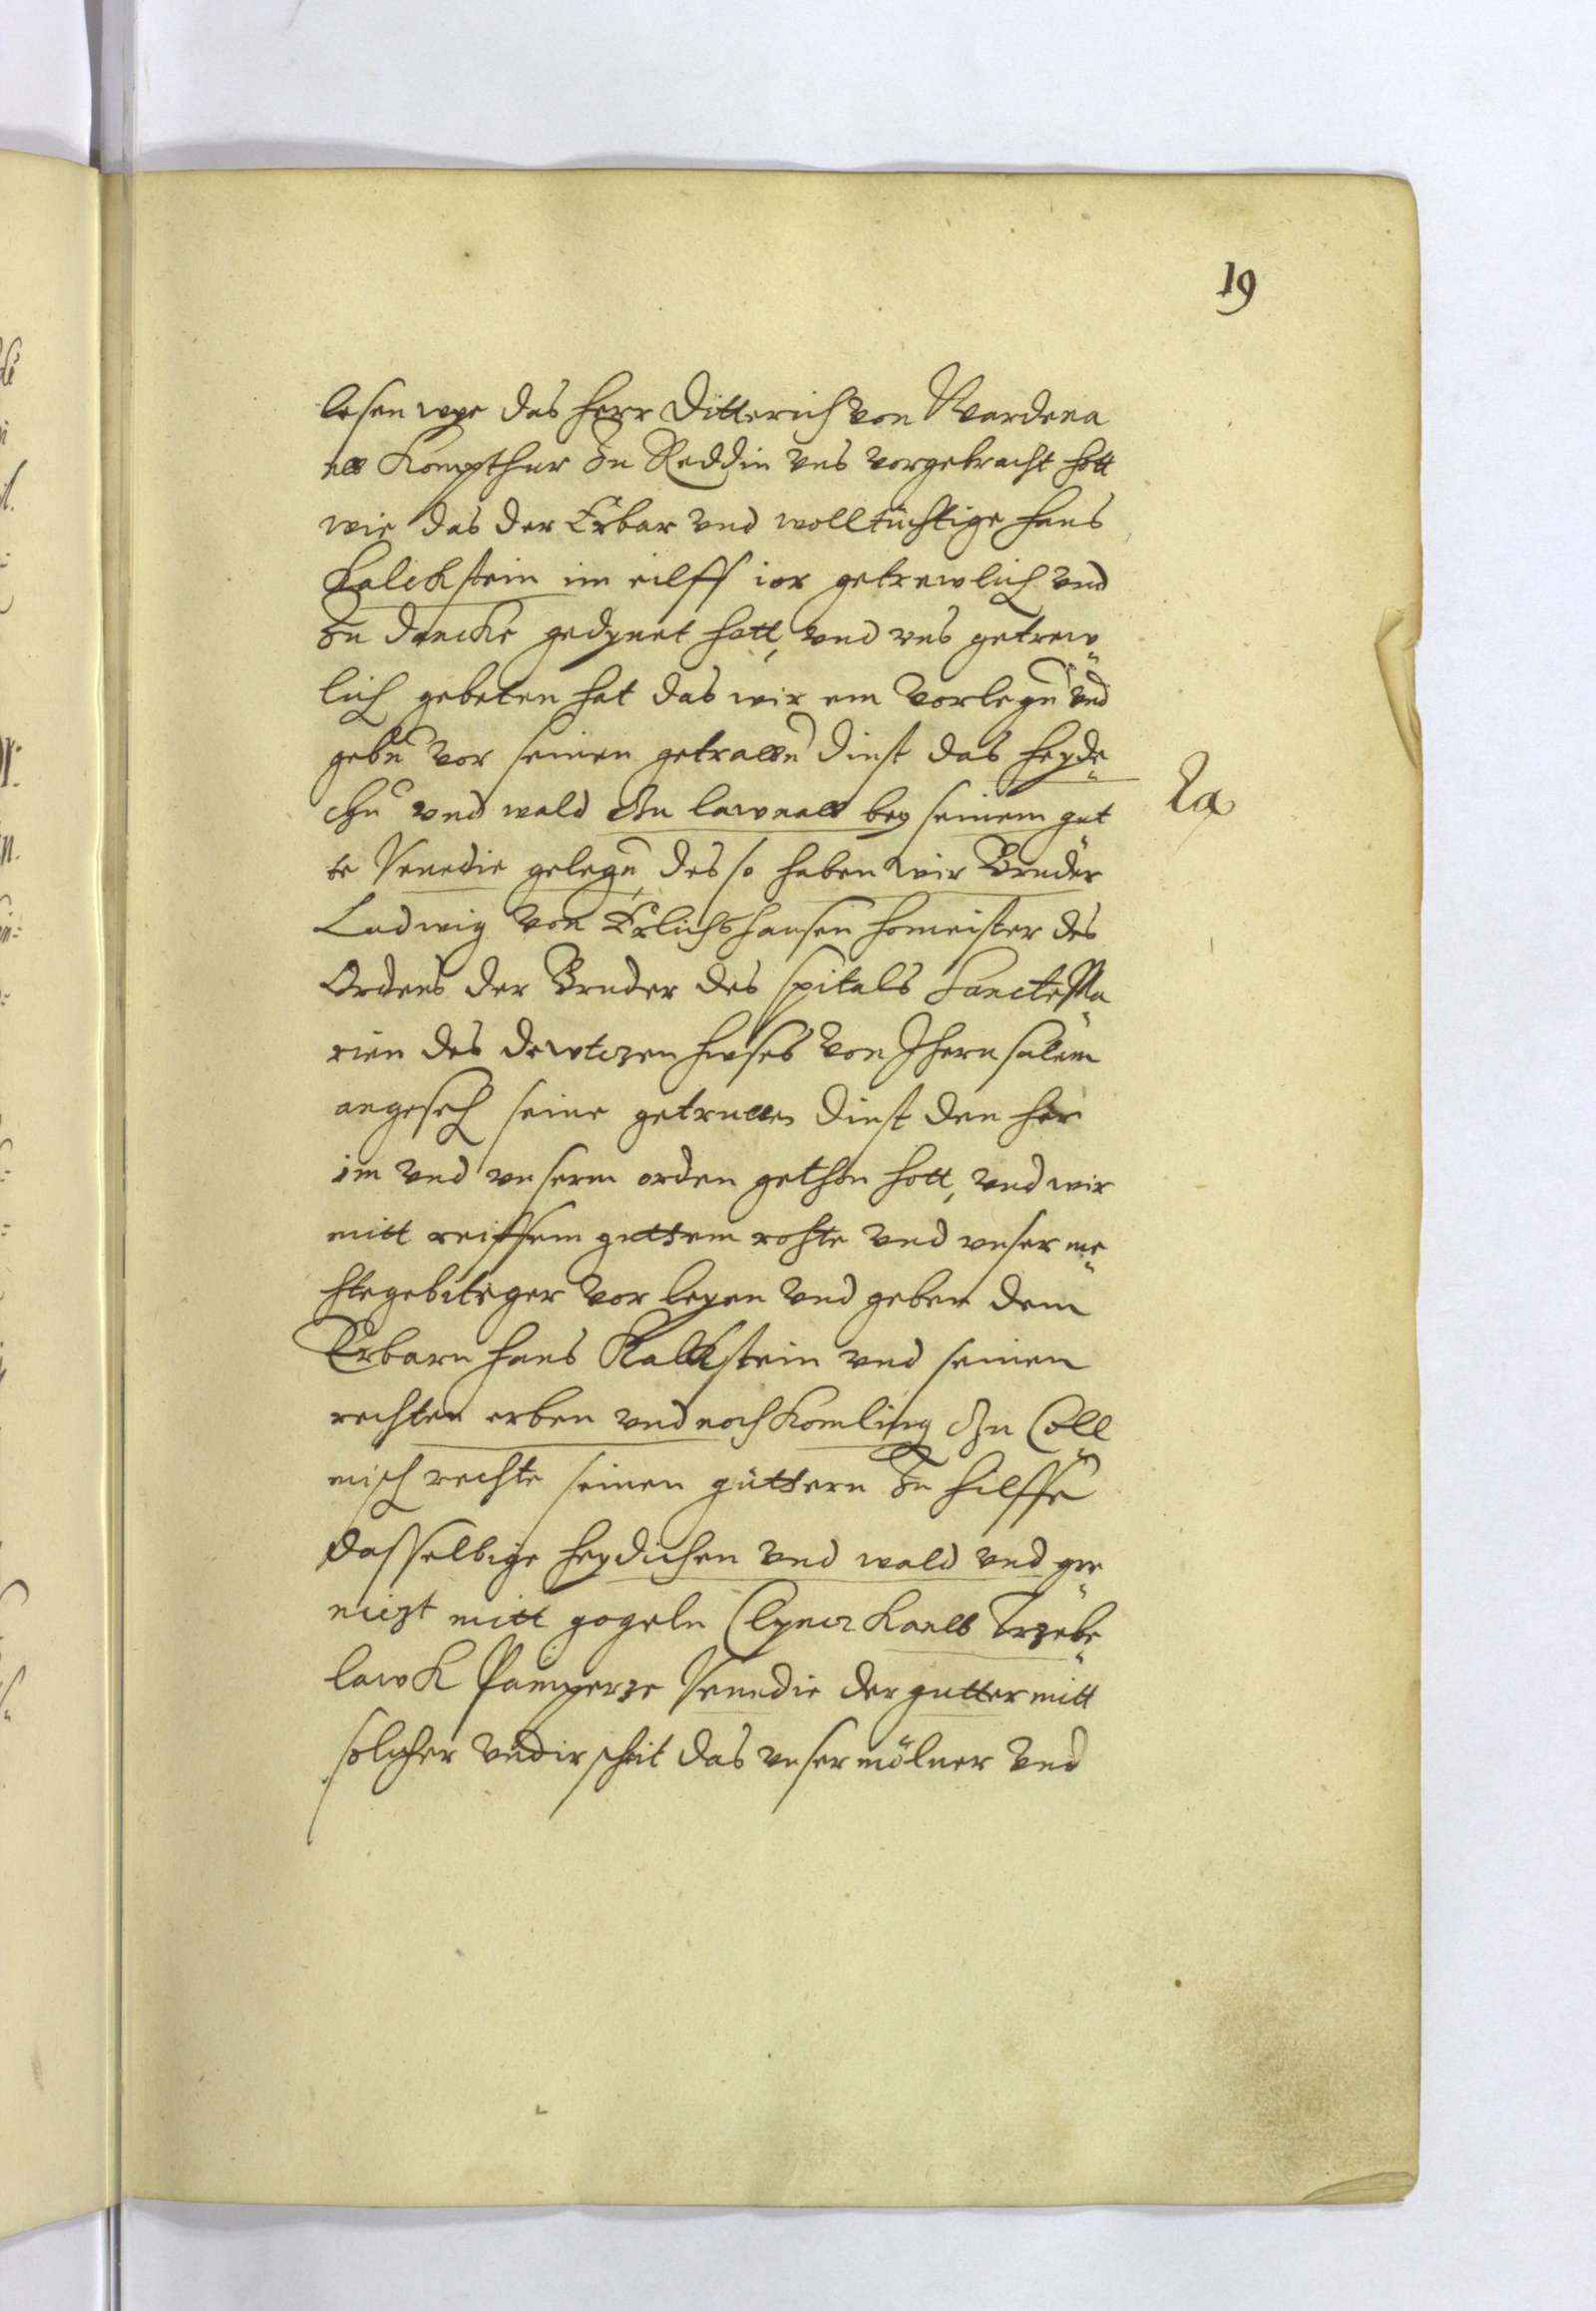 19
lesen wye das herr Ditterich von Wardena
als Kompthur zu Reddin uns vorgebracht hott
wie das der Erbar und wolltüchtige hans
Kalckstein im eilff ior getrewlich und
zu dancke gedynet hatt, und uns getrew
lich gebeten hat das wir em vorlegn und
gebn vor seinen getrawn dinst das heyde
chn und wald zu bey seinem gut
te Venedie gelegn, des so haben wir Bruder
Ludwig von Erlichshausen homeister des
Ordens der Bruder des spitals Sancte Ma
rien des dewtczen hwses von Iherusalem
angeseh seine getruwen dinst den her
im und unserm orden gethon hott, und wir
mitt reiffem guttem rohte und unser me
htegebitiger vor leyen und geben dem
Erbarn hans Kalkstein und seinen
rechten erben und nochkomling zu Coll
misch rechte seinen güttern zu hilffe
dasselbige heydichen und wald und gre
niczt mitt gogeln
lawk Pamperze Venedie der gutter mitt
solcher undirscheit das unser mölner und